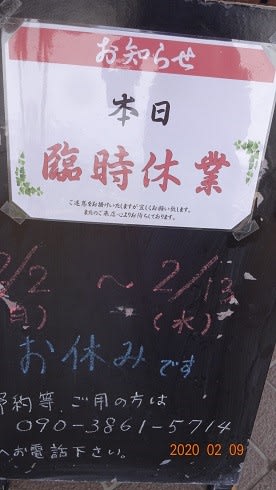 お知らせ
本日
臨時休業
ご迷惑をお掛けいたしますが宜しくお願い致します。
またのご来店心よりお待ちしております。
2/2 〜 2/13
(水)
お休みです
予約等、ご用の方は
090-3861-5714
へお電話下さい。
2020 02 09